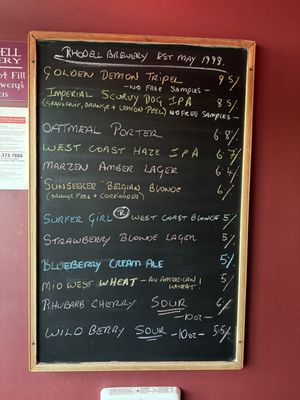 RHODELL BREWERY EST MAY 1998.
GOLDEN DEMON TRIPEL 9.5/.
- NO FREE SAMPLES -
IMPERIAL SCURVY DOG IPA 8.5/.
(GRAPEFRUIT, ORANGE + LEMON PEEL) NO FREE SAMPLES -
OATMEAL PORTER 6.8/.
WEST COAST HAZE IPA 6.7/.
MARZEN AMBER LAGER 6.4/.
SUNSEEKER BELGIAN BLONDE 6/.
(ORANGE PEEL + CORRIANDER)
SURFER GIRL ® WEST COAST BLONDE 5/.
STRAWBERRY BLONDE LAGER 5/.
BLUEBERRY CREAM ALE 5/.
MIDWEST WHEAT - AN AMERICAN WHEAT. 5/.
RHUBARB CHERRY SOUR 6/.
- 10oz -
WILD BERRY SOUR - 10oz - 5.5/.
DELL
ERY
t Fill
ewery's
-373-7888